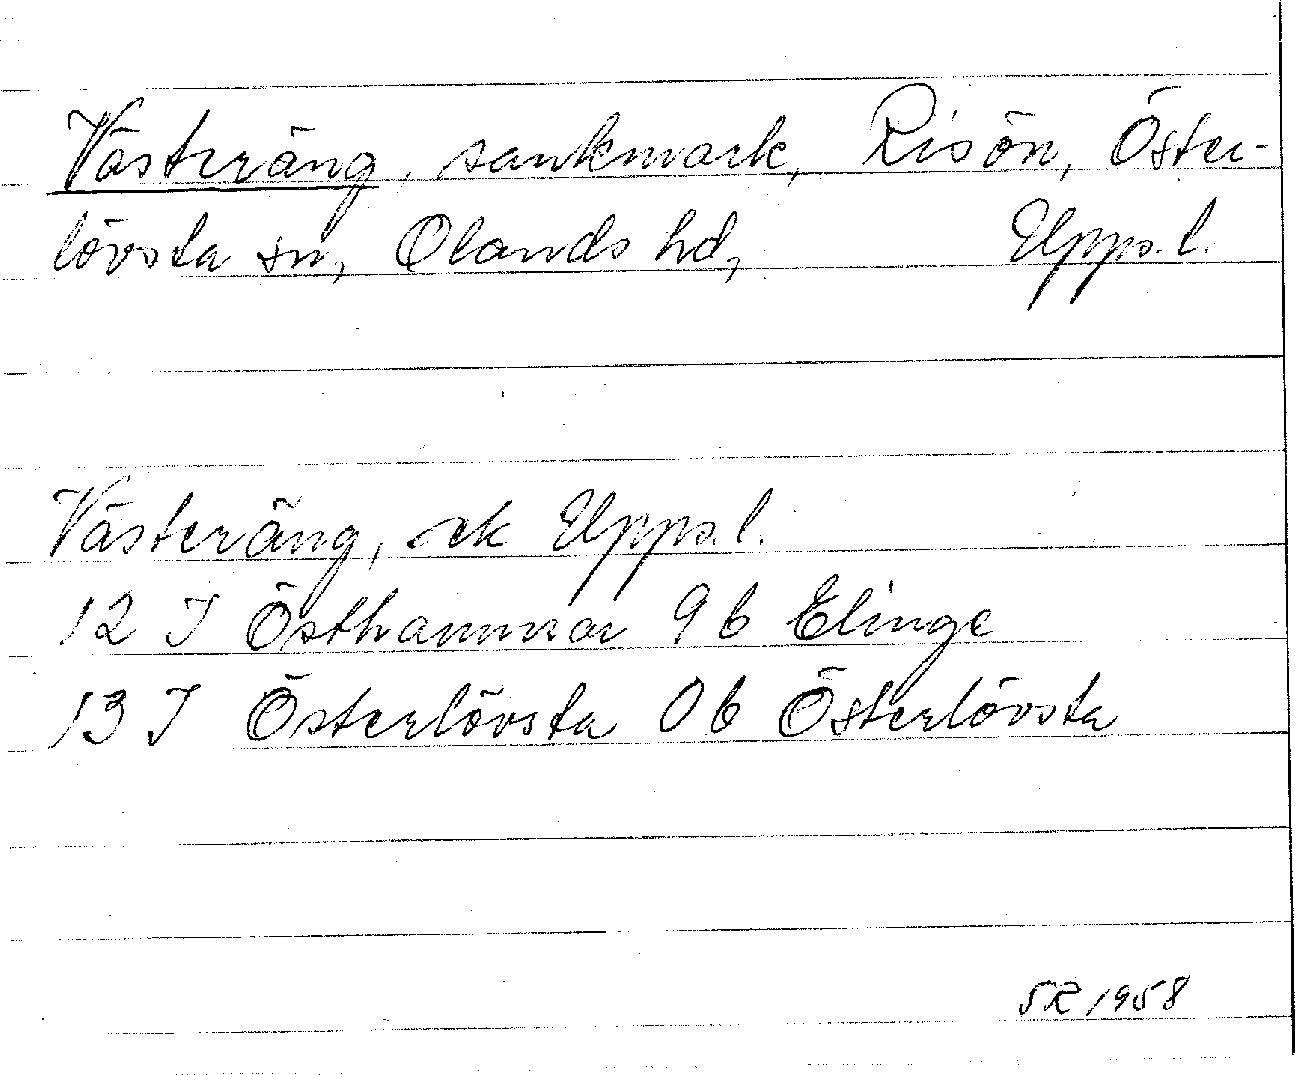 Västeräng, sankmark, Risön, Öster-
lövsta sn, Olands hd, Upps. l.
Västeräng, ek Upps. l.
12 I Östhammar 9 b Elinge
13 I Österlövsta 0 b Österlövsta
SR 1958